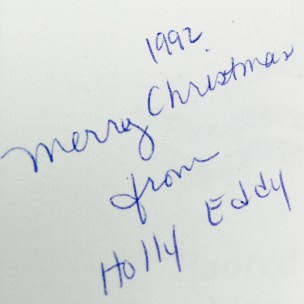 1992
Merry Christmas
from
Holly Eddy